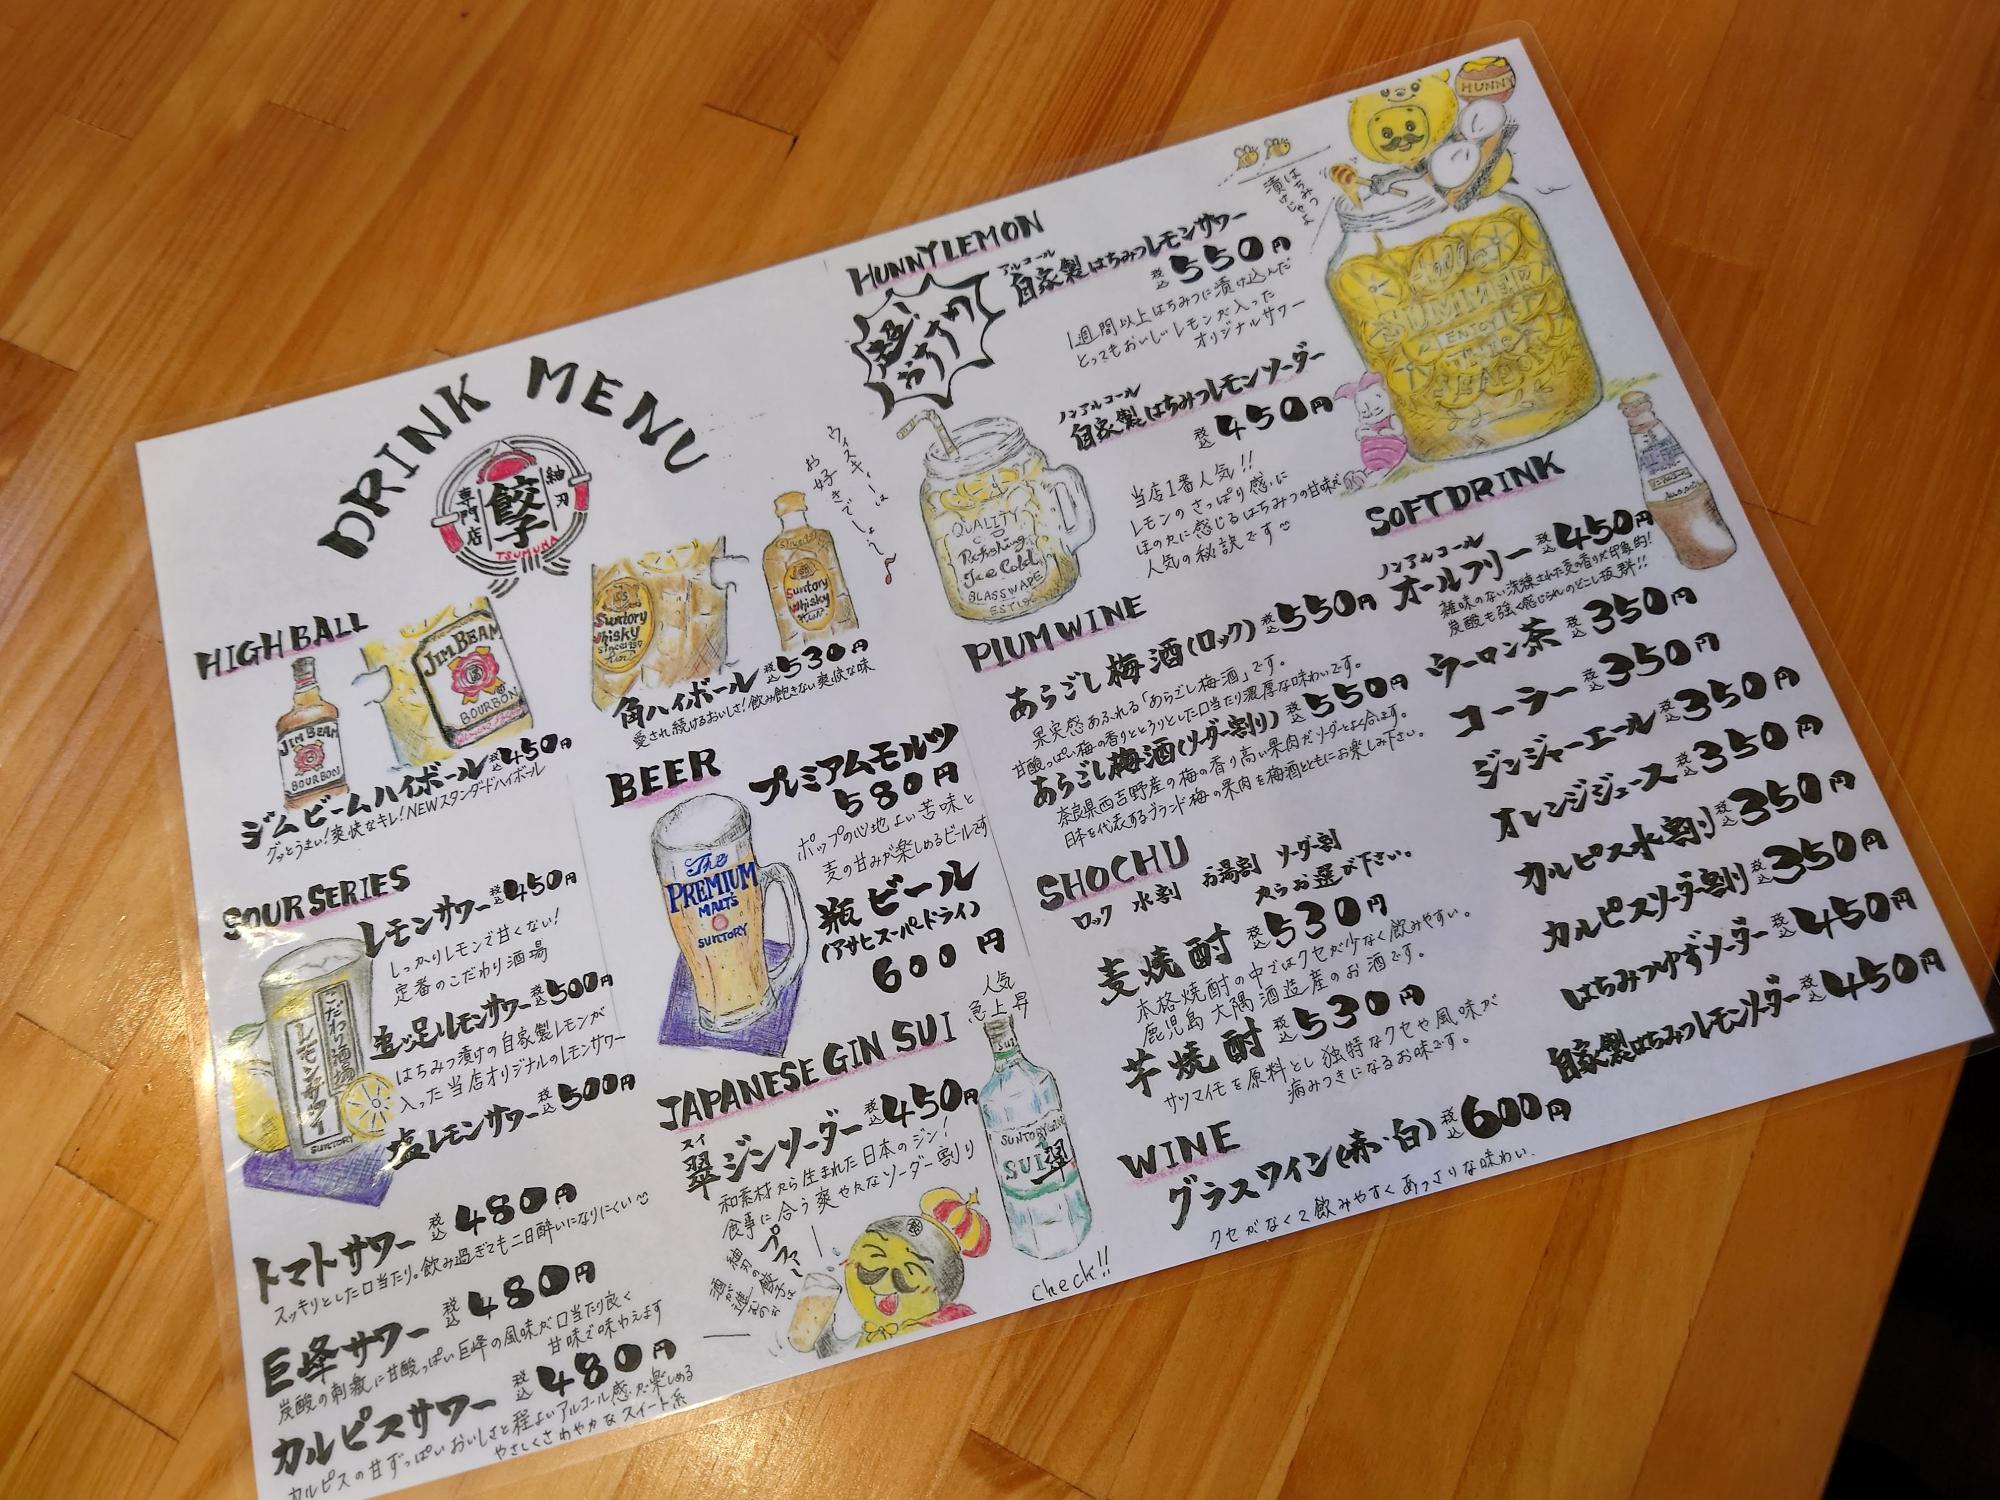 DRINK MENU
紬刃
餃子
専門店
TSUMUHA
HIGH BALL
JIM BEAM
BOURBON
JIM BEAM
BOURBON
ジムビームハイボール 税込450円
グッとうまい!爽快なキレ!NEWスタンダードハイボール
ウィスキーは
お好きでしょう
Suntory
Whisky
Suntory
Whisky
角ハイボール 税込530円
愛され続けるおいしさ!飲み飽きない爽快な味
SOUR SERIES
レモンサワー 税込450円
しっかりレモンで甘くない!
定番のこだわり酒場
こだわり酒場
レモンサワー
SUNTORY
追っ足しレモンサワー 税込500円
はちみつ漬けの自家製レモンが
入った当店オリジナルのレモンサワー
塩レモンサワー 税込500円
トマトサワー 税込480円
スッキリとした口当たり。飲み過ぎても二日酔いになりにくい
巨峰サワー 税込480円
炭酸の刺激に甘酸っぱい巨峰の風味が口当たり良く
甘味で味わえます
カルピスサワー 税込480円
カルピスの甘ずっぱいおいしさと程よいアルコール感が楽しめる
やさしくさわやかなスイート系
BEER
プレミアムモルツ
580円
ホップの心地よい苦味と
麦の甘みが楽しめるビールです
The
PREMIUM
MALT'S
SUNTORY
瓶ビール
(アサヒスーパードライ)
600円
JAPANESE GIN SUI
人気
急上昇
スイ
翠ジンソーダー 税込450円
和素材から生まれた日本のジン!
食事に合う爽やかなソーダー割り
SUNTORY GIN
SUI
翠
check!!
プファー!
紬刃の餃子は
酒が進むのが
HUNNY LEMON
超!
おすすめ
アルコール
自家製はちみつレモンサワー
税込550円
1週間以上はちみつに漬け込んだ
とってもおいしいレモンが入った
オリジナルサワー
ノンアルコール
自家製はちみつレモンソーダー
税込450円
当店1番人気!!
レモンのさっぱり感に
ほのかに感じるはちみつの甘味が
人気の秘訣です
QUALITY
Refreshing
Ice Cold
はちみつ
漬けじゃよ
HUNNY
GOOD
SUMMER
ENJOY
THE
SEASON
PLUM WINE
あらごし梅酒(ロック) 税込550円
果実感あふれる「あらごし梅酒」です。
甘酸っぱい梅の香りととろりとした口当たり濃厚な味わいです。
あらごし梅酒(ソーダー割り) 税込550円
奈良県西吉野産の梅の香り高い果肉がソーダとよく合います。
日本を代表するブランド梅の果肉を梅酒とともにお楽しみ下さい。
SHOCHU
ロック 水割 お湯割 ソーダー割
からお選び下さい。
麦焼酎 税込530円
本格焼酎の中ではクセが少なく飲みやすい。
鹿児島大隅酒造産のお酒です。
芋焼酎 税込530円
サツマイモを原料とし独特なクセや風味が
病みつきになるお味です。
WINE
グラスワイン(赤・白) 税込600円
クセがなくて飲みやすくあっさりな味わい.
SOFT DRINK
ノンアルコール
オールフリー 税込450円
雑味のない洗練された麦の香りが印象的!
炭酸も強く感じられのどごし抜群!!
ウーロン茶 税込350円
コーラー 税込350円
ジンジャーエール 税込350円
オレンジジュース 税込350円
カルピス水割り 税込350円
カルピスソーダー割り 税込350円
はちみつゆずソーダー 税込450円
自家製はちみつレモンソーダー 税込450円